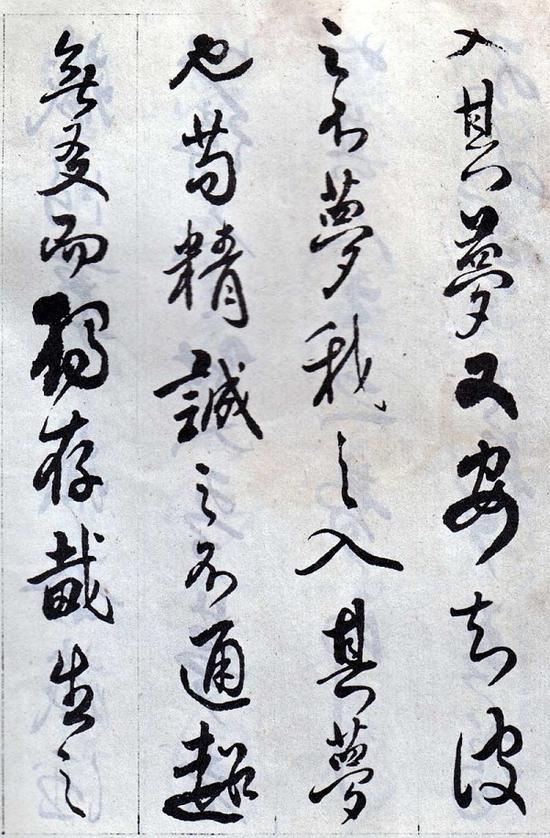 入其夢又安知彼
之不夢我之入其夢
也苟精誠之不通超
無友而獨存哉生之